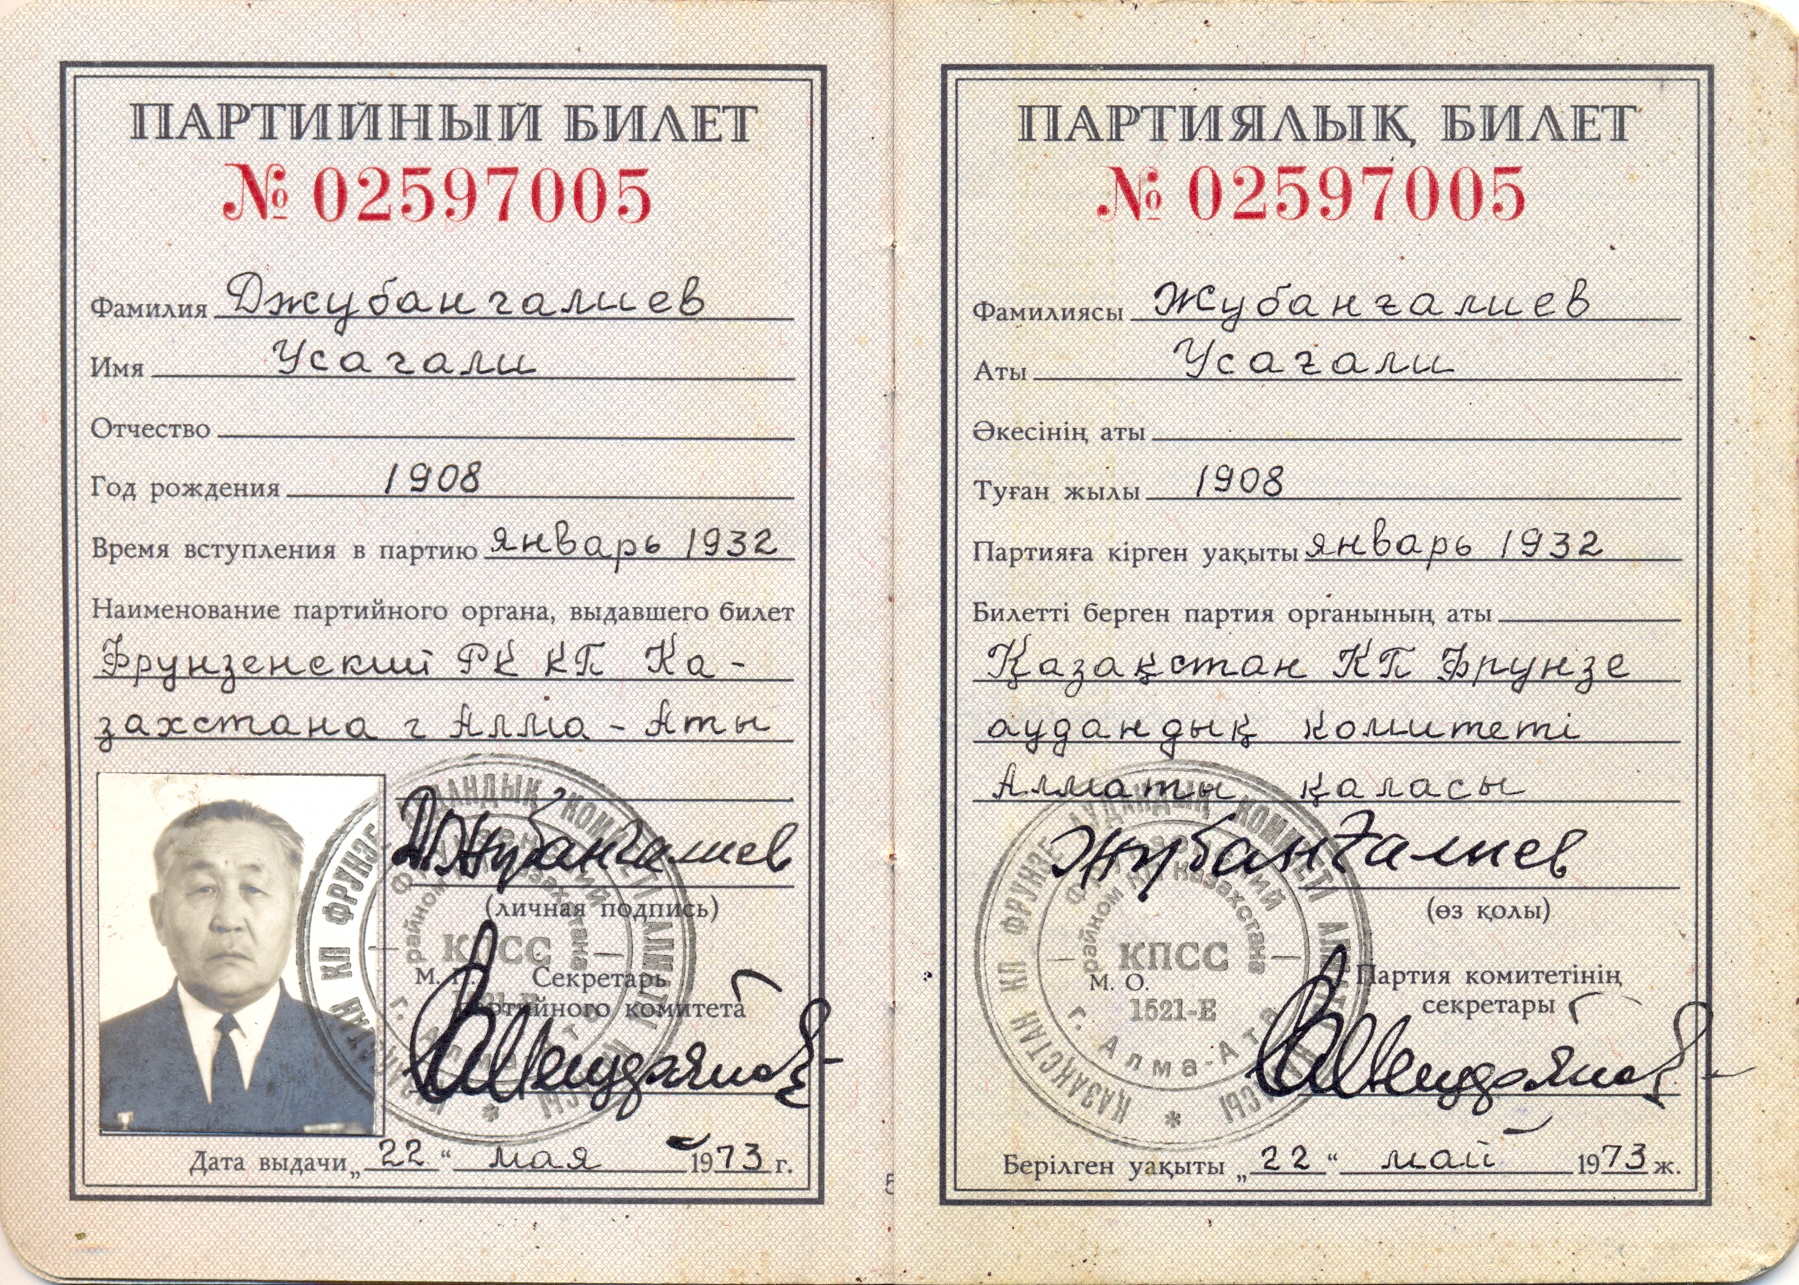 ПАРТИЙНЫЙ БИЛЕТ
№ 02597005
Фамилия Джубангалиев
Имя Усагали
Отчество
Год рождения 1908
Время вступления в партию январь 1932
Наименование партийного органа, выдавшего билет
Фрунзенский РК КП Ка-
захстана г Алма-Аты
Джубангалиев
(личная подпись)
М. П. Секретарь
партийного комитета
Дата выдачи „22“ мая 1973 г.
ҚАЗАҚСТАН КП ФРУНЗЕ АУДАНДЫҚ КОМИТЕТІ АЛМАТЫ ҚАЛАСЫ
Фрунзенский
райком КП Казахстана
КПСС
1521-Е
г. Алма-Ата
ПАРТИЯЛЫҚ БИЛЕТ
№ 02597005
Фамилиясы Жубанғалиев
Аты Усағали
Әкесінің аты
Туған жылы 1908
Партияға кірген уақыты январь 1932
Билетті берген партия органының аты
Қазақстан КП Фрунзе
аудандық комитеті
Алматы қаласы
Жубанғалиев
(өз қолы)
М. О. Партия комитетінің
секретары
Берілген уақыты „22“ май 1973 ж.
ҚАЗАҚСТАН КП ФРУНЗЕ АУДАНДЫҚ КОМИТЕТІ АЛМАТЫ ҚАЛАСЫ
Фрунзенский
райком КП Казахстана
КПСС
1521-Е
г. Алма-Ата